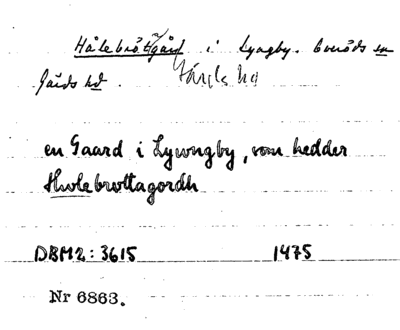 Hålebrottgård i Lyngby. bveröds en
Järds hd.
en Gaard i Lywngby, som hedder
Hwolebrottagordh
DBM2: 3615 1475
Nr 6863.